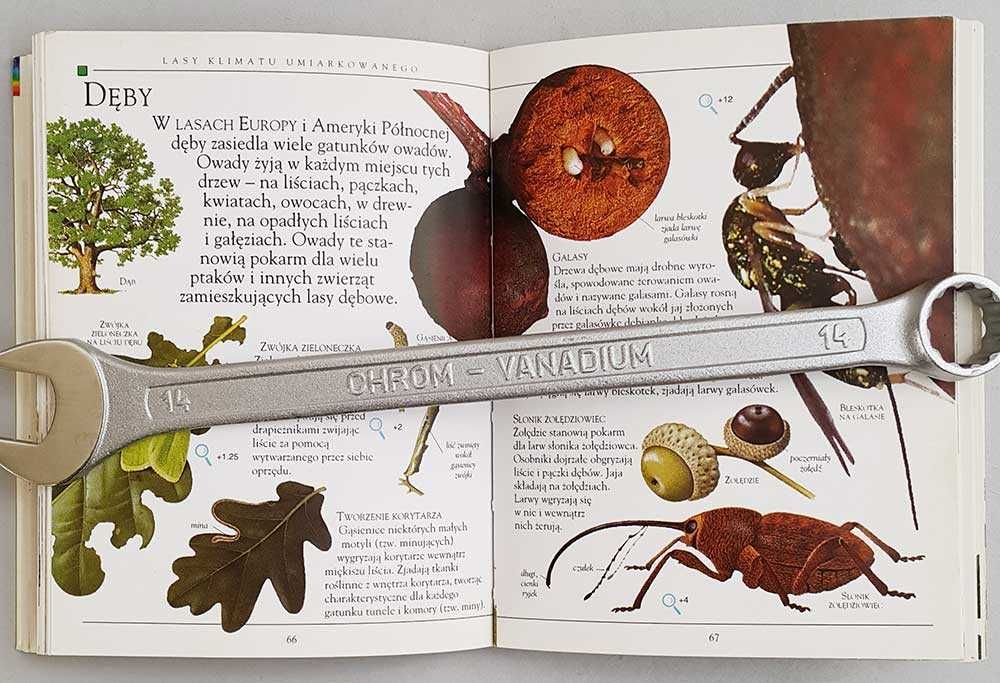 LASY KLIMATU UMIARKOWANEGO
DĘBY
W LASACH EUROPY i Ameryki Północnej
dęby zasiedla wiele gatunków owadów.
Owady żyją w każdym miejscu tych
drzew – na liściach, pączkach,
kwiatach, owocach, w drew-
nie, na opadłych liściach
i gałęziach. Owady te sta-
nowią pokarm dla wielu
ptaków i innych zwierząt
zamieszkujących lasy dębowe.
DĄB
ZWÓJKA
ZIELONECZKA
NA LIŚCIU DĘBU
ZWÓJKA ZIELONECZKA
GĄSIENICA
się przed
drapieżnikami zwijając
liście za pomocą
wytwarzanego przez siebie
oprzędu.
+1.25
+2
liść zwinięty
wokół
gąsienicy
zwójki
mina
TWORZENIE KORYTARZA
Gąsienice niektórych małych
motyli (tzw. minujących)
wygryzają korytarze wewnątrz
miękiszu liścia. Zjadają tkanki
roślinne z wnętrza korytarza, tworząc
charakterystyczne dla każdego
gatunku tunele i komory (tzw. miny).
66
+12
larwa bleskotki
zjada larwę
galasówki
GALASY
Drzewa dębowe mają drobne wyro-
śla, spowodowane żerowaniem owa-
dów i nazywane galasami. Galasy rosną
na liściach dębów wokół jaj złożonych
przez galasówkę
się larwy bleskotek, zjadają larwy galasówek.
BLESKOTKA
NA GALASIE
SŁONIK ŻOŁĘDZIOWIEC
Żołędzie stanowią pokarm
dla larw słonika żołędziowca.
Osobniki dojrzałe obgryzają
liście i pączki dębów. Jaja
składają na żołędziach.
Larwy wgryzają się
w nie i wewnątrz
nich żerują.
poczerniały
żołądź
ŻOŁĘDZIE
długi,
cienki
ryjek
czułek
+4
SŁONIK
ŻOŁĘDZIOWIEC
67
14 CHROM – VANADIUM 14